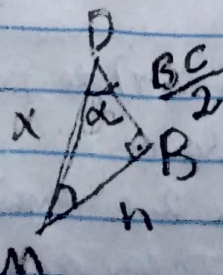 D
BC/2
x
α
B
n
M